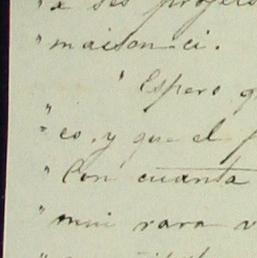 " à ses projets
" maison-ci.
" Espero q
" co, y que el
" Con cuanta
" mui rara v